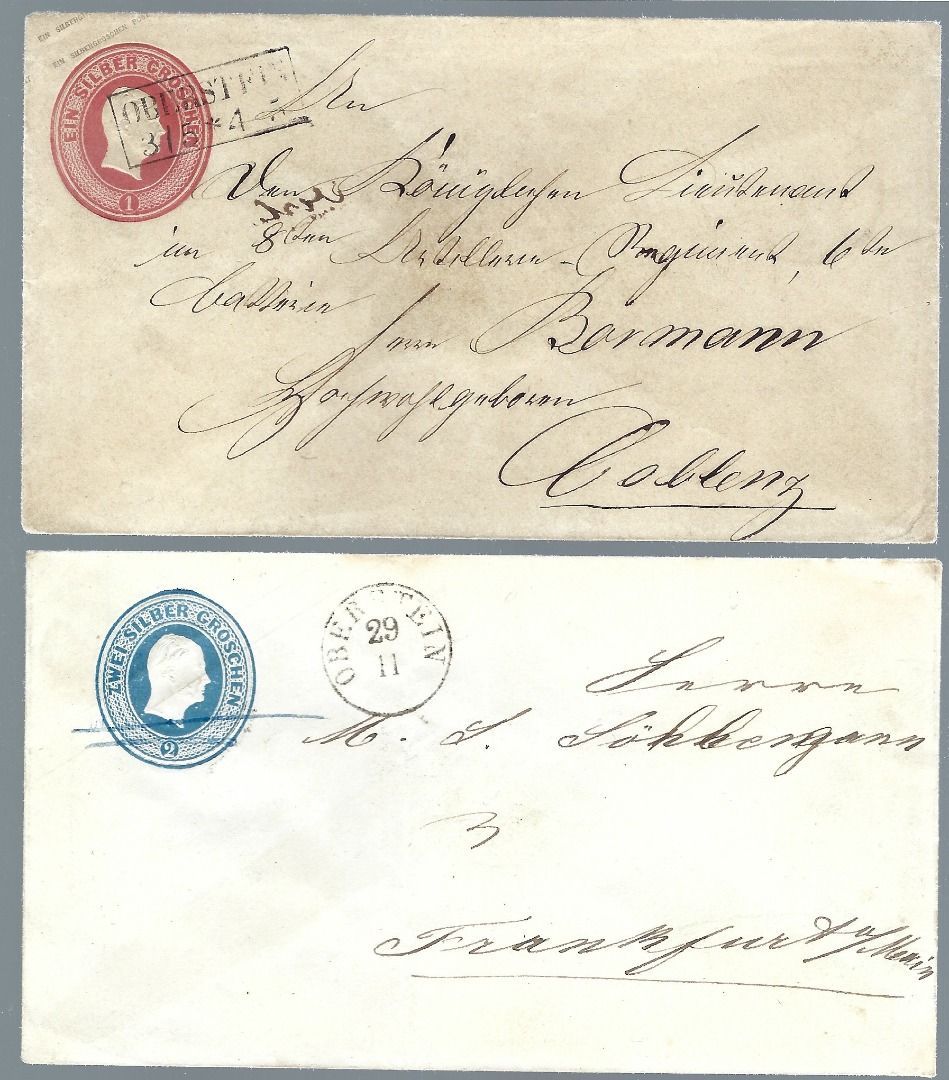 EIN SILBERGROSCHEN POST
EIN SILBER GROSCHEN
1
OBERSTEIN
31 5 * 4 - 5
An
Den Königlichen Lieutenant
im 8ten Artillerie-Regiment, 6te
Batterie
Herrn Bormann
Hochwohlgeboren
Coblenz
ZWEI SILBER GROSCHEN
2
OBERSTEIN
29
11
Herrn
M. S.
3
Frankfurt a/Main